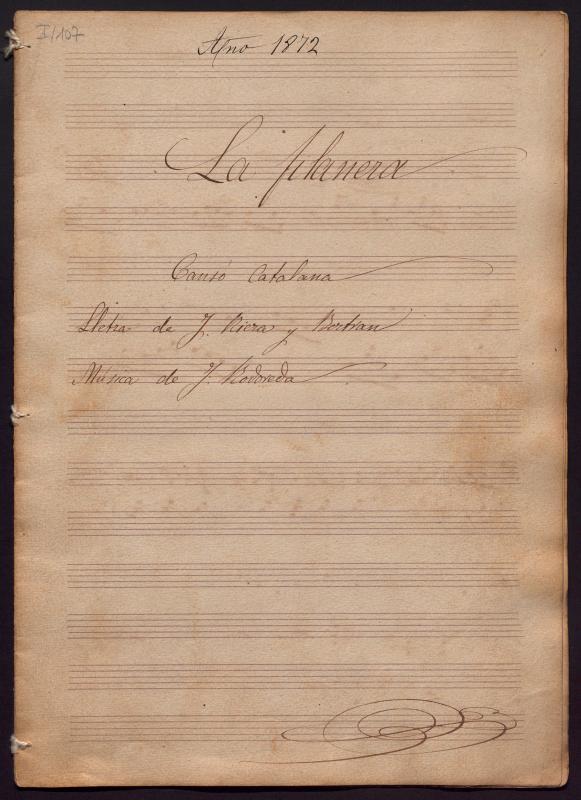 I/107
Año 1872
La planera
Cansó Catalana
Lletra de J. Riera y Bertran
Música de J. Rodoreda